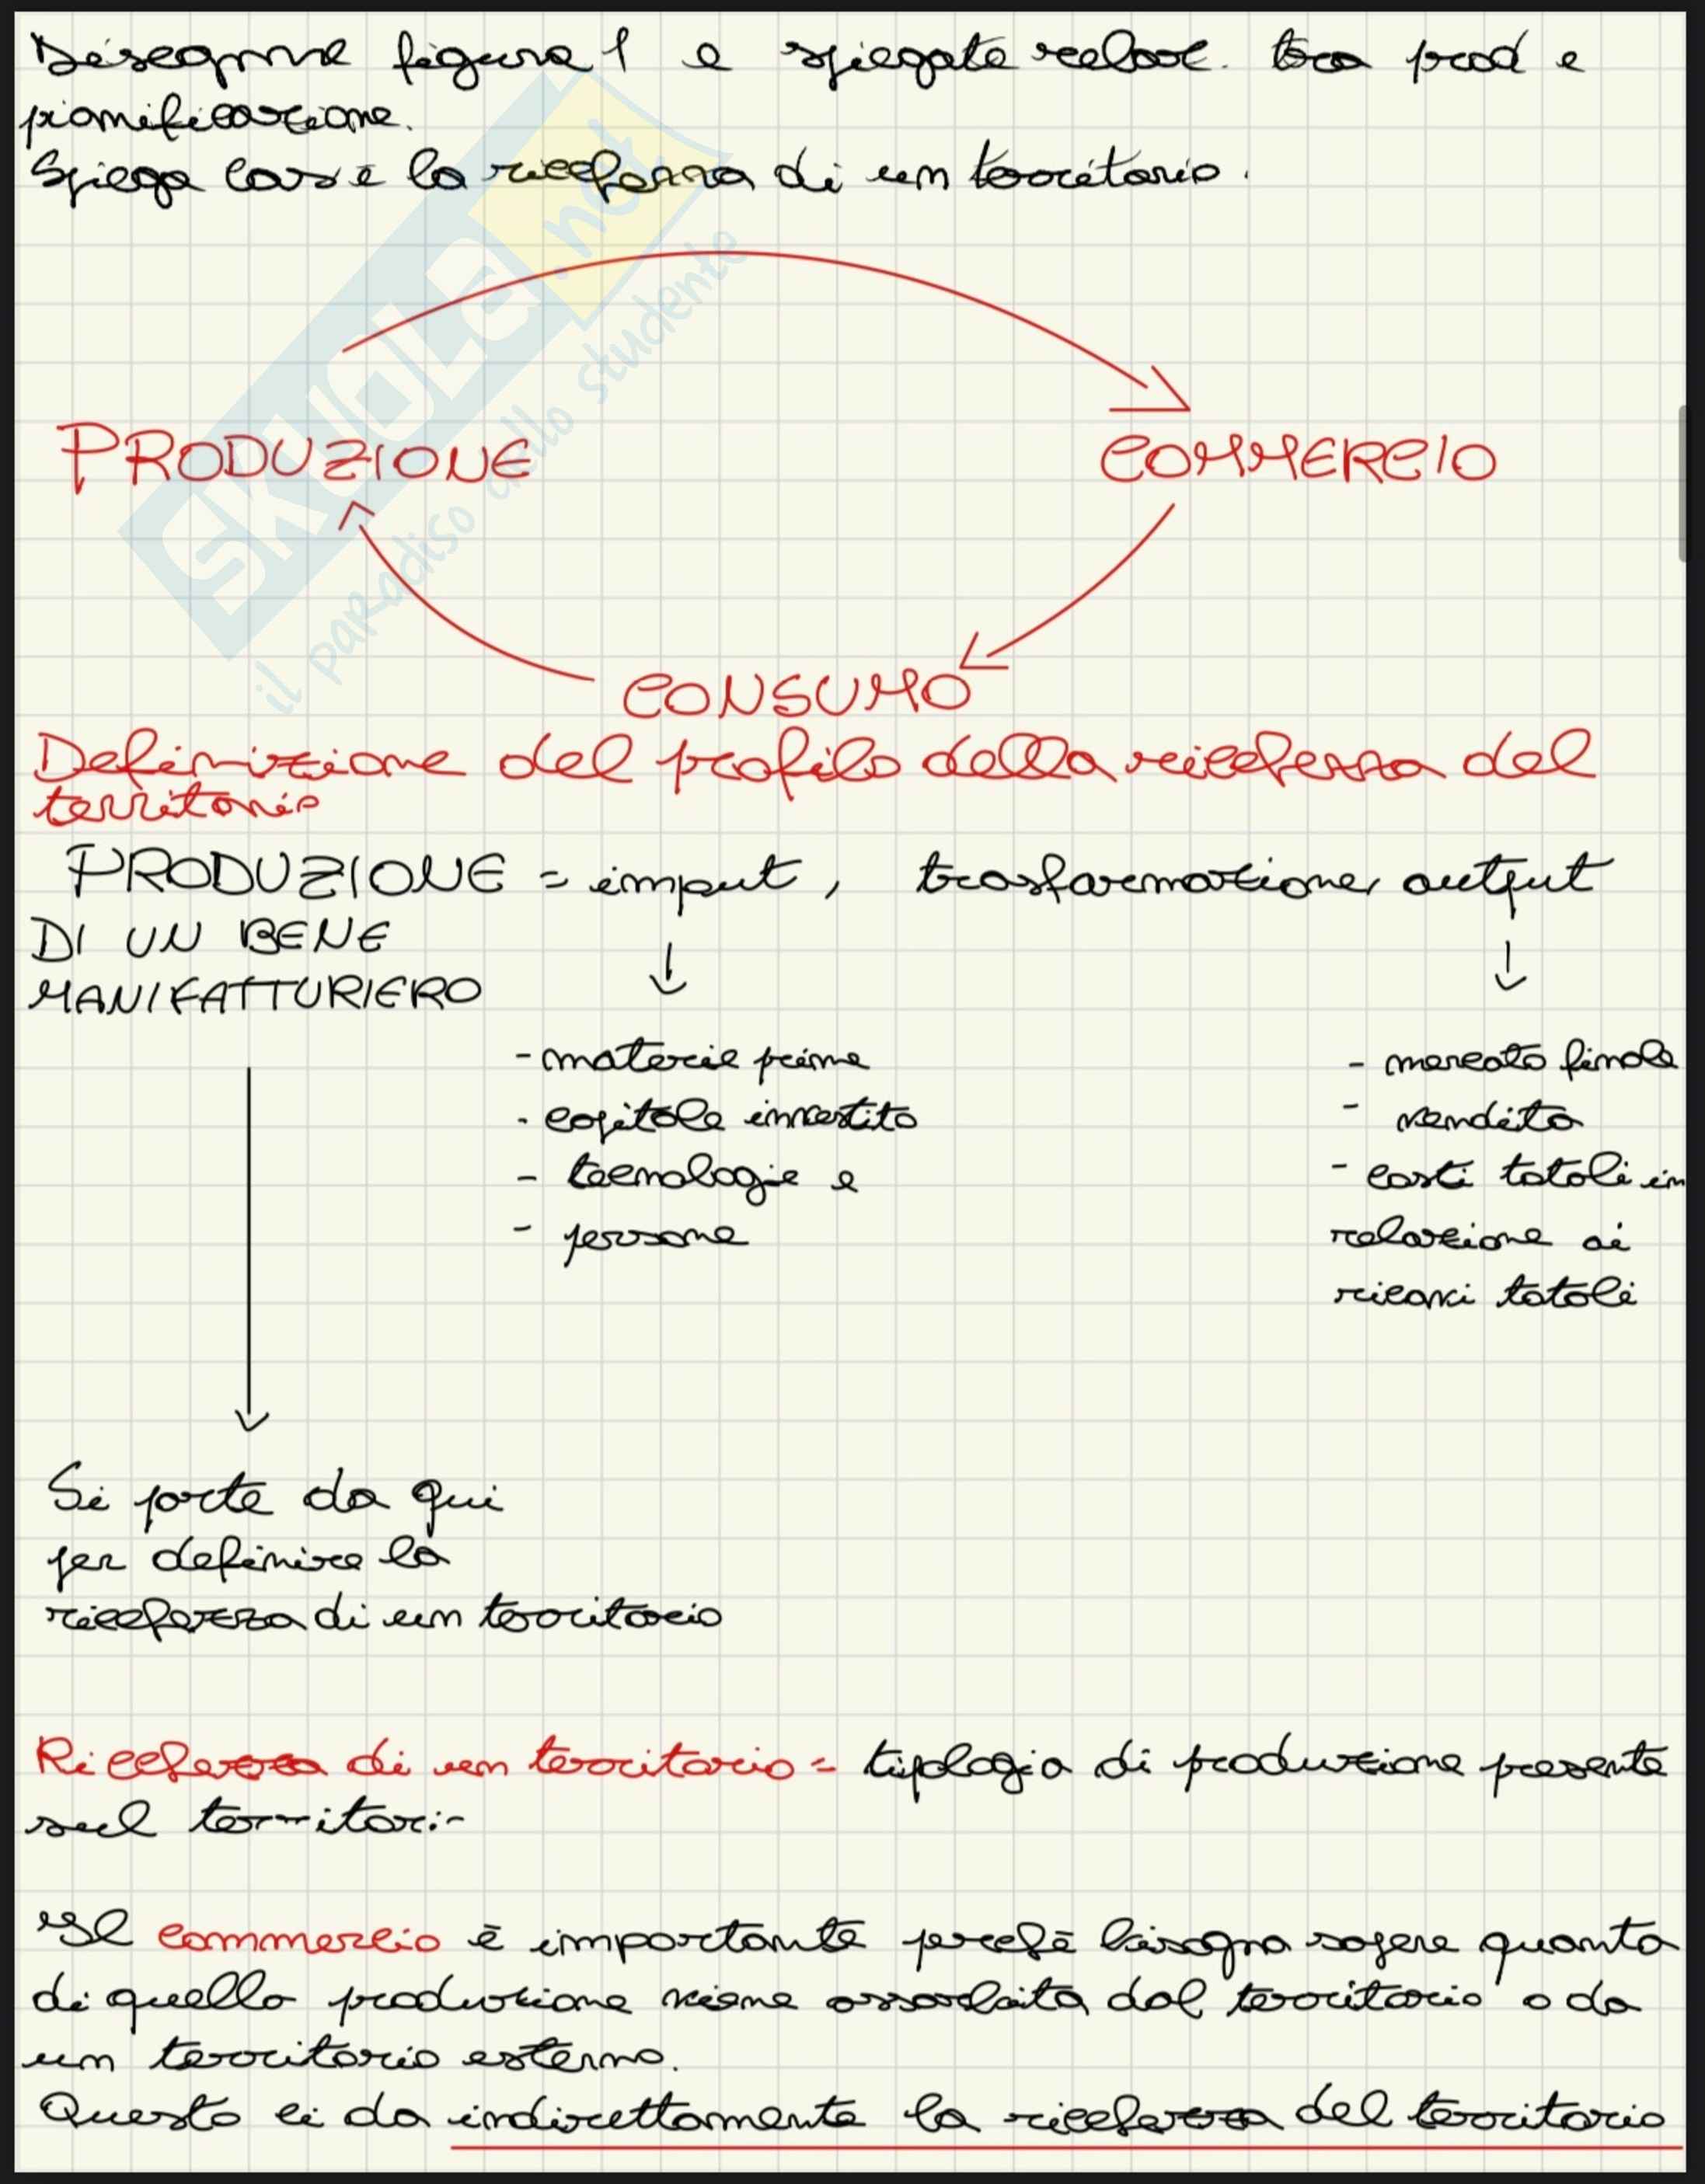 Disegnare figura 1 e spiegate relaz. tra prod e
pianificazione.
Spiega cos'è la ricchezza di un territorio.
PRODUZIONE
COMMERCIO
CONSUMO
Definizione del profilo della ricchezza del
territorio
PRODUZIONE = imput, trasformazione, output
DI UN BENE
MANIFATTURIERO
- materie prime
- mercato finale
- capitale investito
- vendita
- tecnologie e
- costi totali in
- persone
relazione ai
ricavi totali
Si parte da qui
per definire la
ricchezza di un territorio
Ricchezza di un territorio = tipologia di produzione presente
sul territorio
Il commercio è importante perché bisogna sapere quanta
di quella produzione viene assorbita dal territorio o da
un territorio esterno.
Questo ci da indirettamente la ricchezza del territorio
SKUOLA.net
il paradiso dello studente